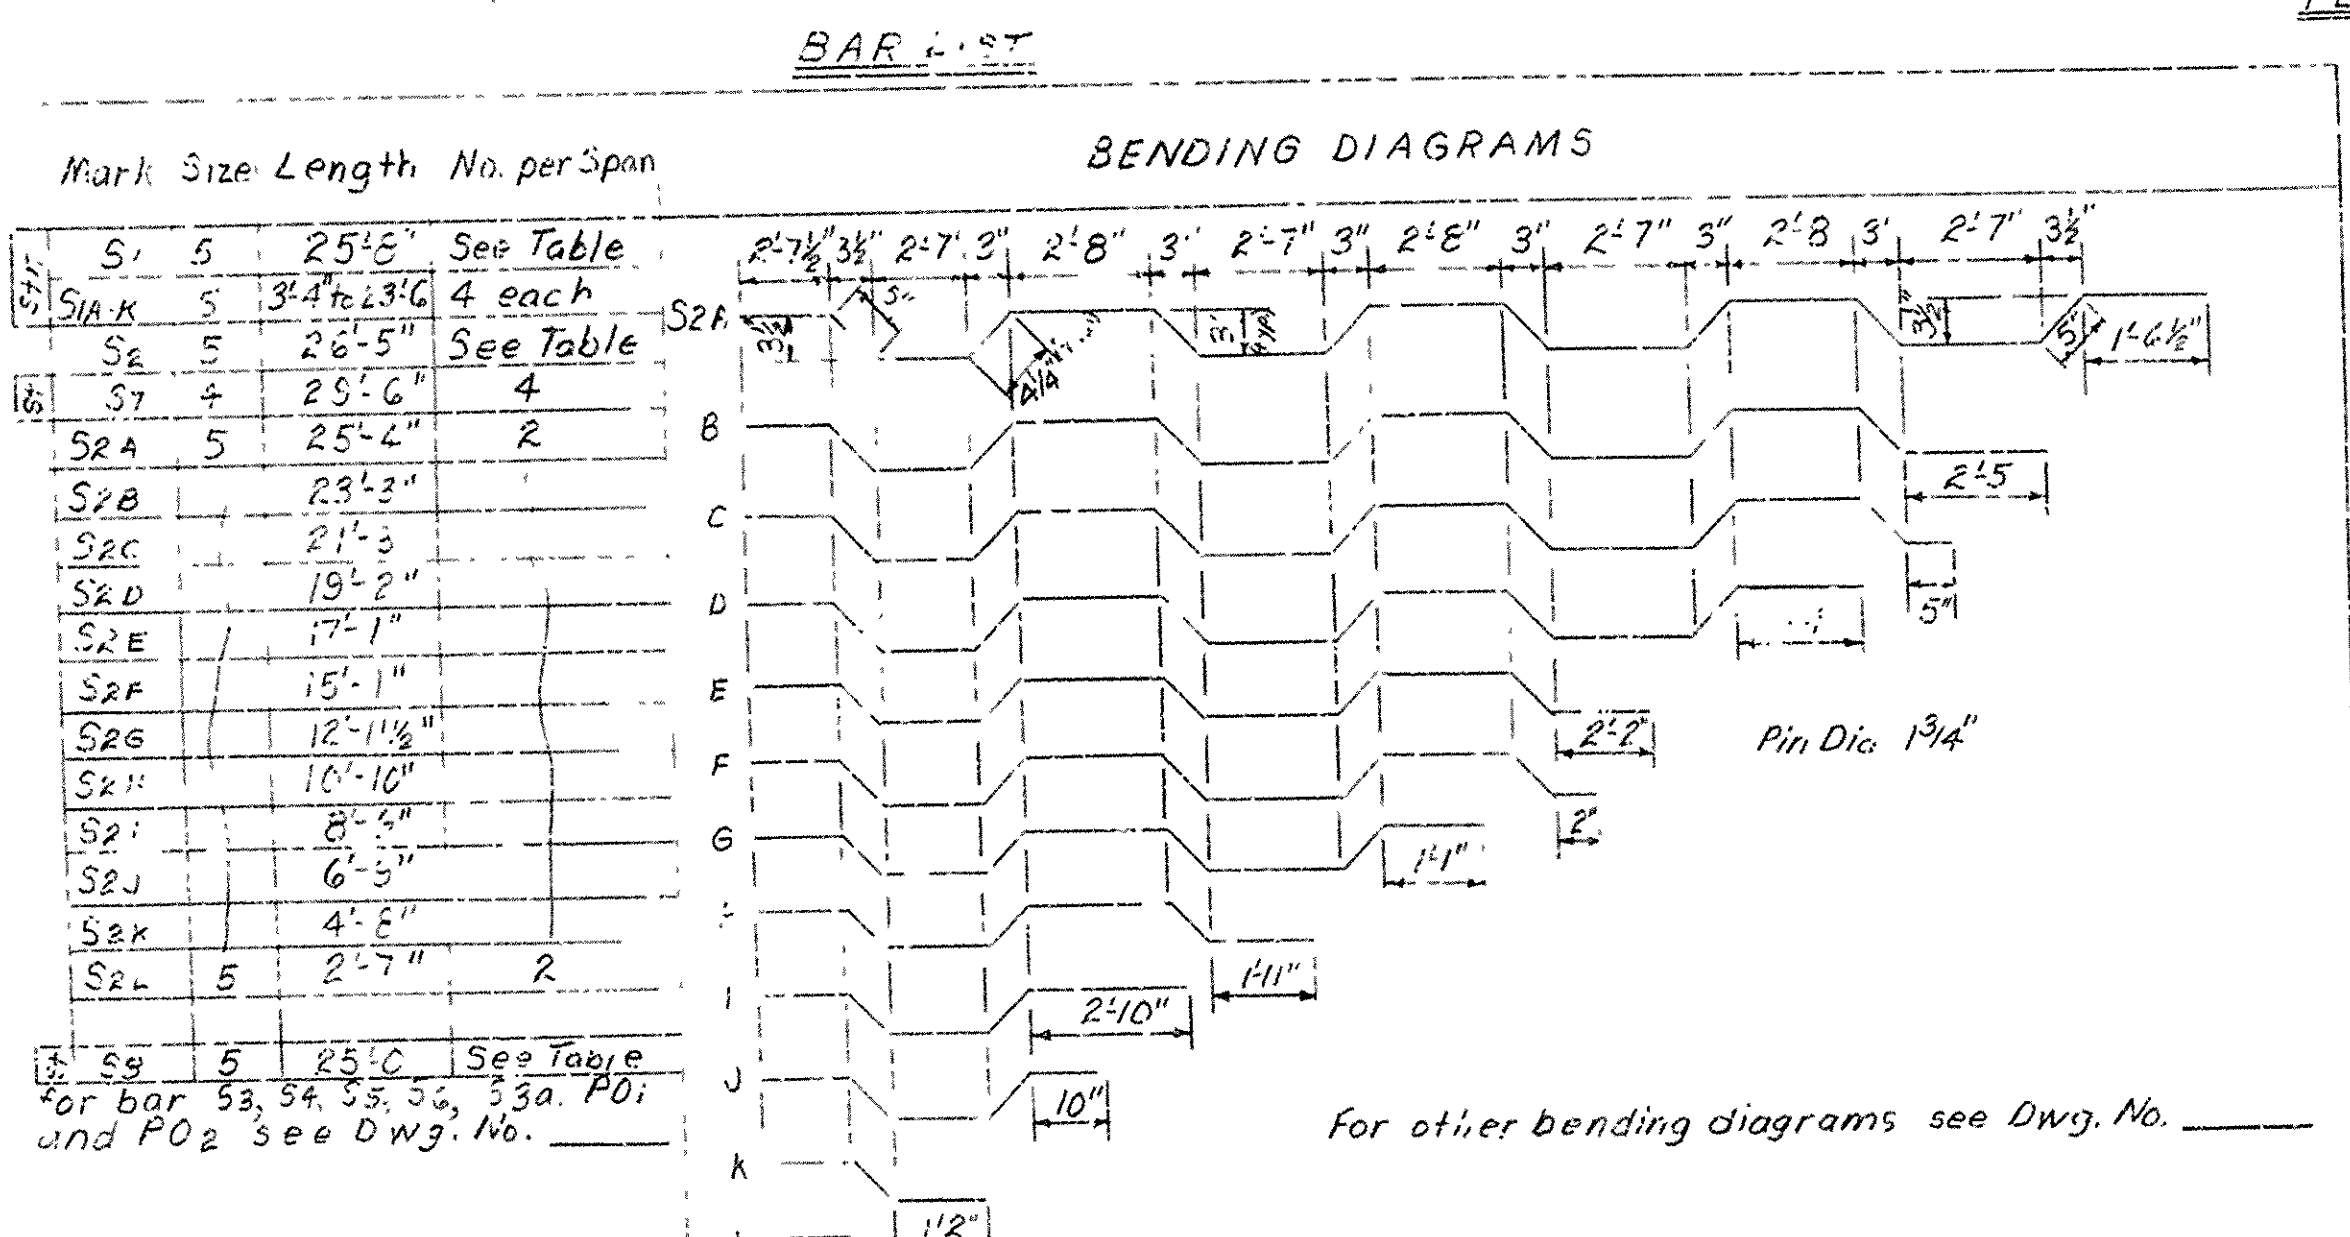 BAR LIST
BENDING DIAGRAMS
Mark Size Length No. per Span
Str. S1 5 25'-8" See Table
S1A-K 5 3'-4" to 23'-6 4 each
S2 5 26'-5" See Table
St. S7 4 4
S2A 5 25'-4" 2
S2B 23'-3"
S2C 21'-3
S2D 19'-2"
S2E 17'-1"
S2F 15'-1"
S2G 12'-11½"
S2H 10'-10"
S2I
S2J
S2K 4'-8"
S2L 5 2'-7" 2
St S8 5 25'-0 See Table
For bar S3, S4, S5, S6, S3a. PO1
and PO2 see Dwg. No. ____
2'-7½" 3½" 2'-7 3" 2'-8" 3" 2'-7" 3" 2'-8" 3" 2'-7" 3" 2'-8 3' 2'-7" 3½"
S2A 3½" 5" 4¼" 3" Typ. 3½" 5" 1'-6½"
B 2'-5
C 5"
D
E 2'-2"
Pin Dia 1¾"
F 2"
G 1'-1"
1'-11"
I 2'-10"
J 10"
For other bending diagrams see Dwg. No. ____
K 1'2"